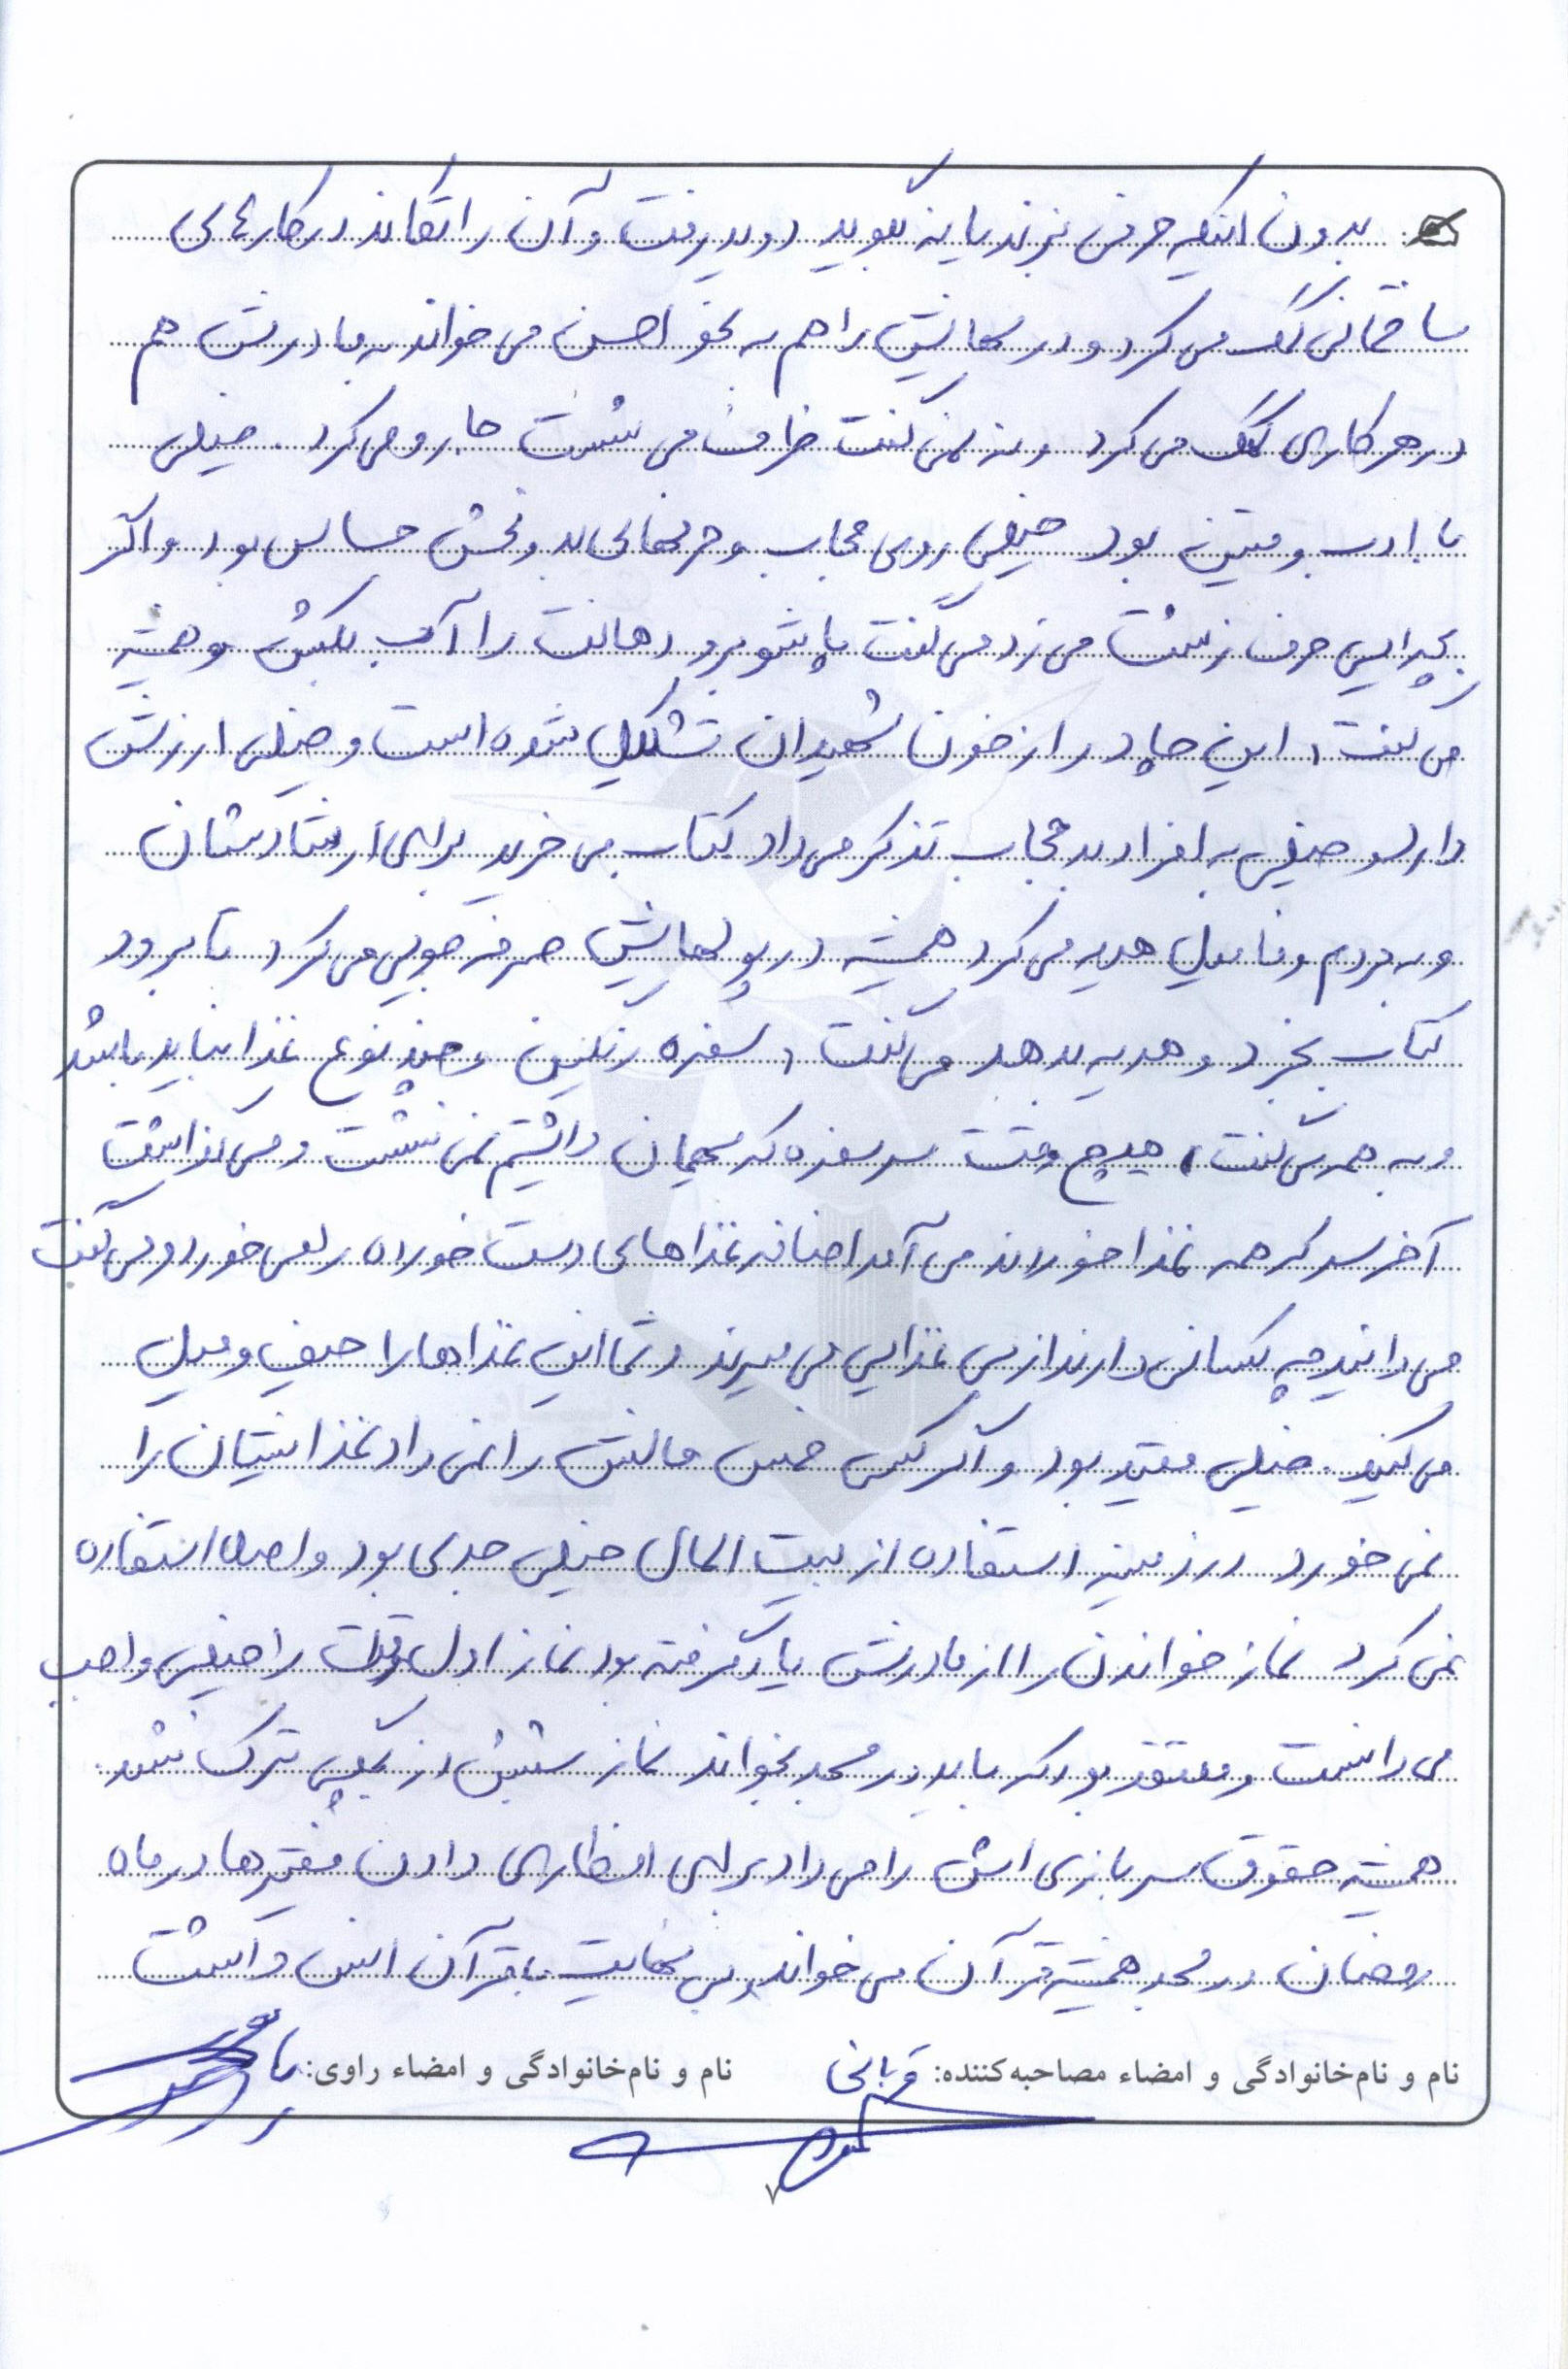 بدون اینکه حرفی بزند یا نه بگوید دوید رفت و آن را تکاند در کارهای
ساختمانی کمک می کرد و درسهایش را هم به نحو احسن می خواند به مادرش هم
در هر کاری کمک می کرد و نه نمی گفت ظرف می شست جارو می کرد. خیلی
با ادب و متین بود خیلی روی حجاب و حرفهای بد و فحش حساس بود و اگر
بچه ایی حرف زشت می زد می گفت پاشو برو دهانت را آب بکش و همیشه
می گفت، این چادر از خون شهیدان تشکیل شده است و خیلی ارزش
دارد و خیلی به افراد بد حجاب تذکر می داد کتاب می خرید برای ارشادشان
و به مردم و فامیل هدیه می کرد همیشه در پولهایش صرفه جویی می کرد تا برود
کتاب بخرد و هدیه بدهد می گفت، سفره رنگین و چند نوع غذا نباید باشد
و به همه می گفت، هیچ وقت سر سفره که مهمان داشتیم نمی نشست و می گذاشت
آخر سر که همه غذا خوردند می آمد اضافه غذاهای دست خورده را می خورد و می گفت
می دانید چه کسانی دارند از بی غذایی می میرند و شما این غذاها را حیف و میل
می کنید. خیلی مقید بود و اگر کسی خمس مالش را نمی داد غذایشان را
نمی خورد در زمینه استفاده از بیت المال خیلی جدی بود و اصلا استفاده
نمی کرد نماز خواندن را از مادرش یاد گرفته بود نماز اول وقت را خیلی واجب
می دانست و معتقد بود که باید در مسجد بخواند نماز شبش از بچگی ترک نشد.
همیشه حقوق سربازی اش را می داد برای افطاری دادن فقیرها در ماه
رمضان در مسجد همیشه قرآن می خواند و بی نهایت با قرآن انس داشت
نام و نام‌خانوادگی و امضاء مصاحبه‌کننده: قربانی نام و نام‌خانوادگی و امضاء راوی:
۷